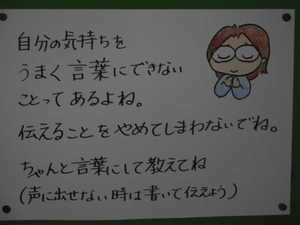 自分の気持ちを
うまく言葉にできない
ことってあるよね。
伝えることをやめてしまわないでね。
ちゃんと言葉にして教えてね
(声に出せない時は書いて伝えよう)